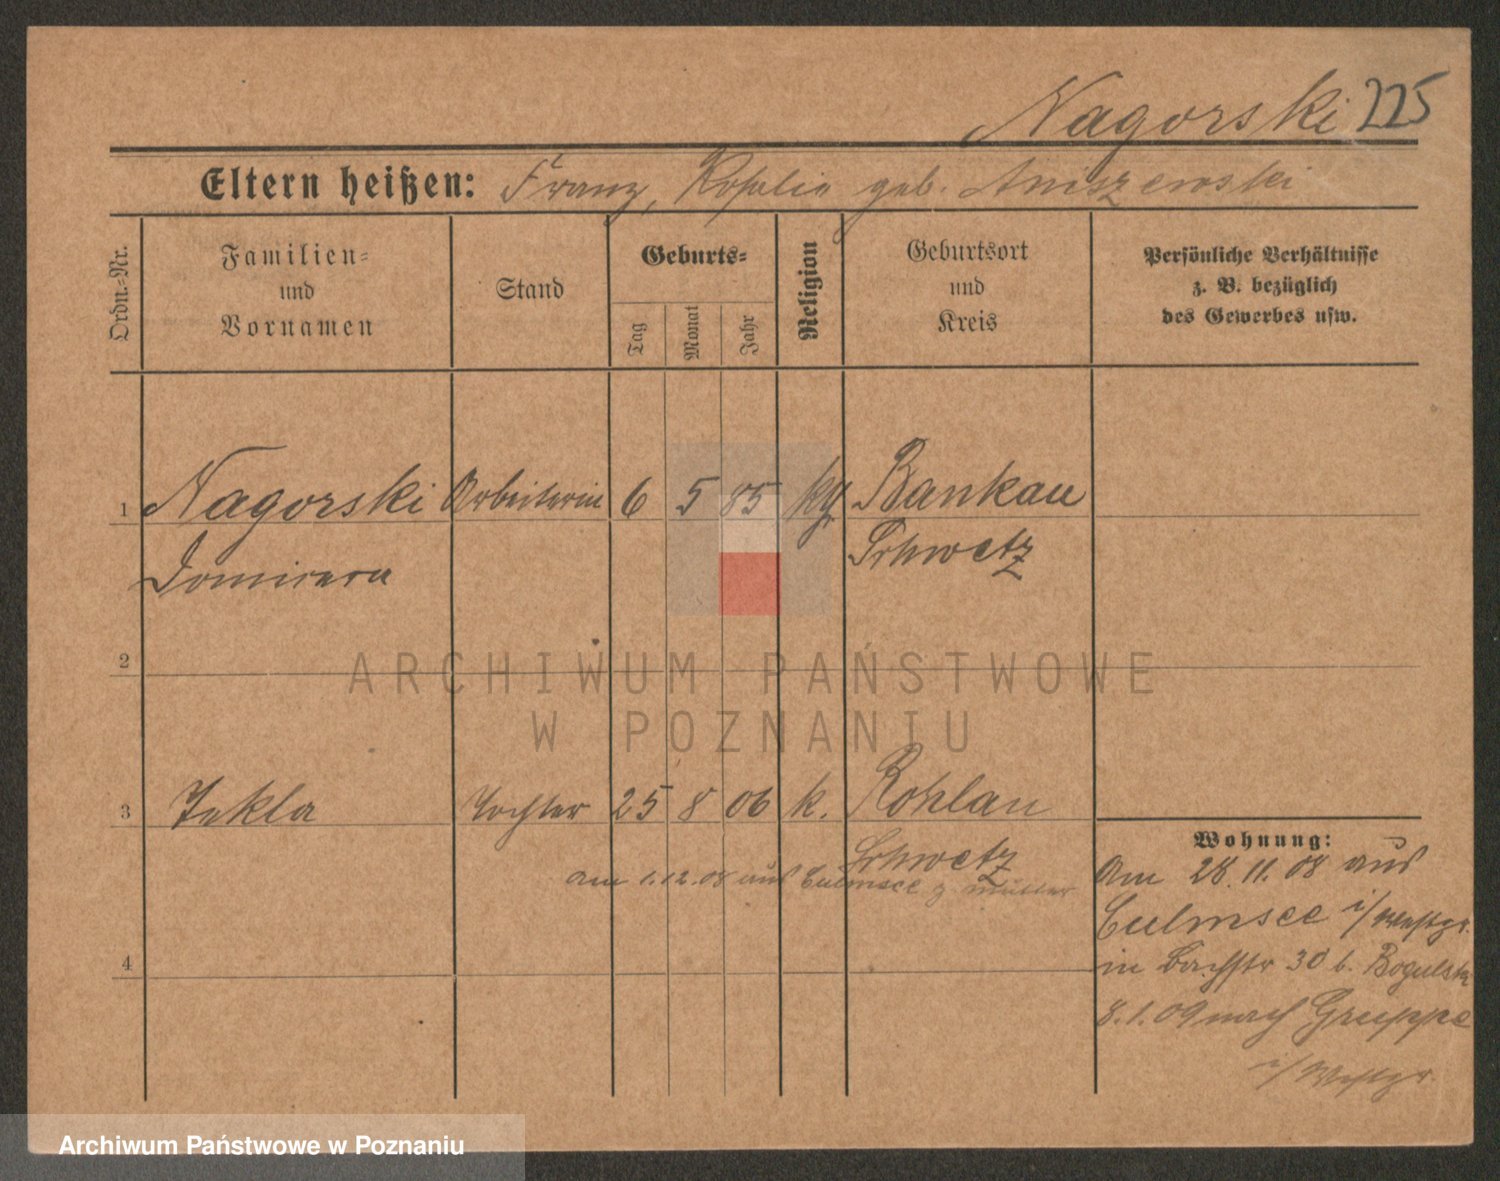 Nagorski 225
Eltern heißen: Franz, Rosalie geb. Aniszewski
Ordn.=Nr.
Familien=
und
Vornamen
Stand
Geburts=
Tag
Monat
Jahr
Religion
Geburtsort
und
Kreis
Persönliche Verhältnisse
z. B. bezüglich
des Gewerbes usw.
1 Nagorski Arbeiterin 6 5 85 Bankau
Schwetz
2
ARCHIWUM PAŃSTWOWE
W POZNANIU
3 Tekla Tochter 25 8 06 k. Rohlau
Schwetz
am 1.12.08 aus Culmsee z. Mutter
4
Wohnung:
Am 28.11.08 aus
Culmsee i/Westpr.
in Bachstr 30 b.
8.1.09 nach Gruppe
i/Westpr.
Archiwum Państwowe w Poznaniu